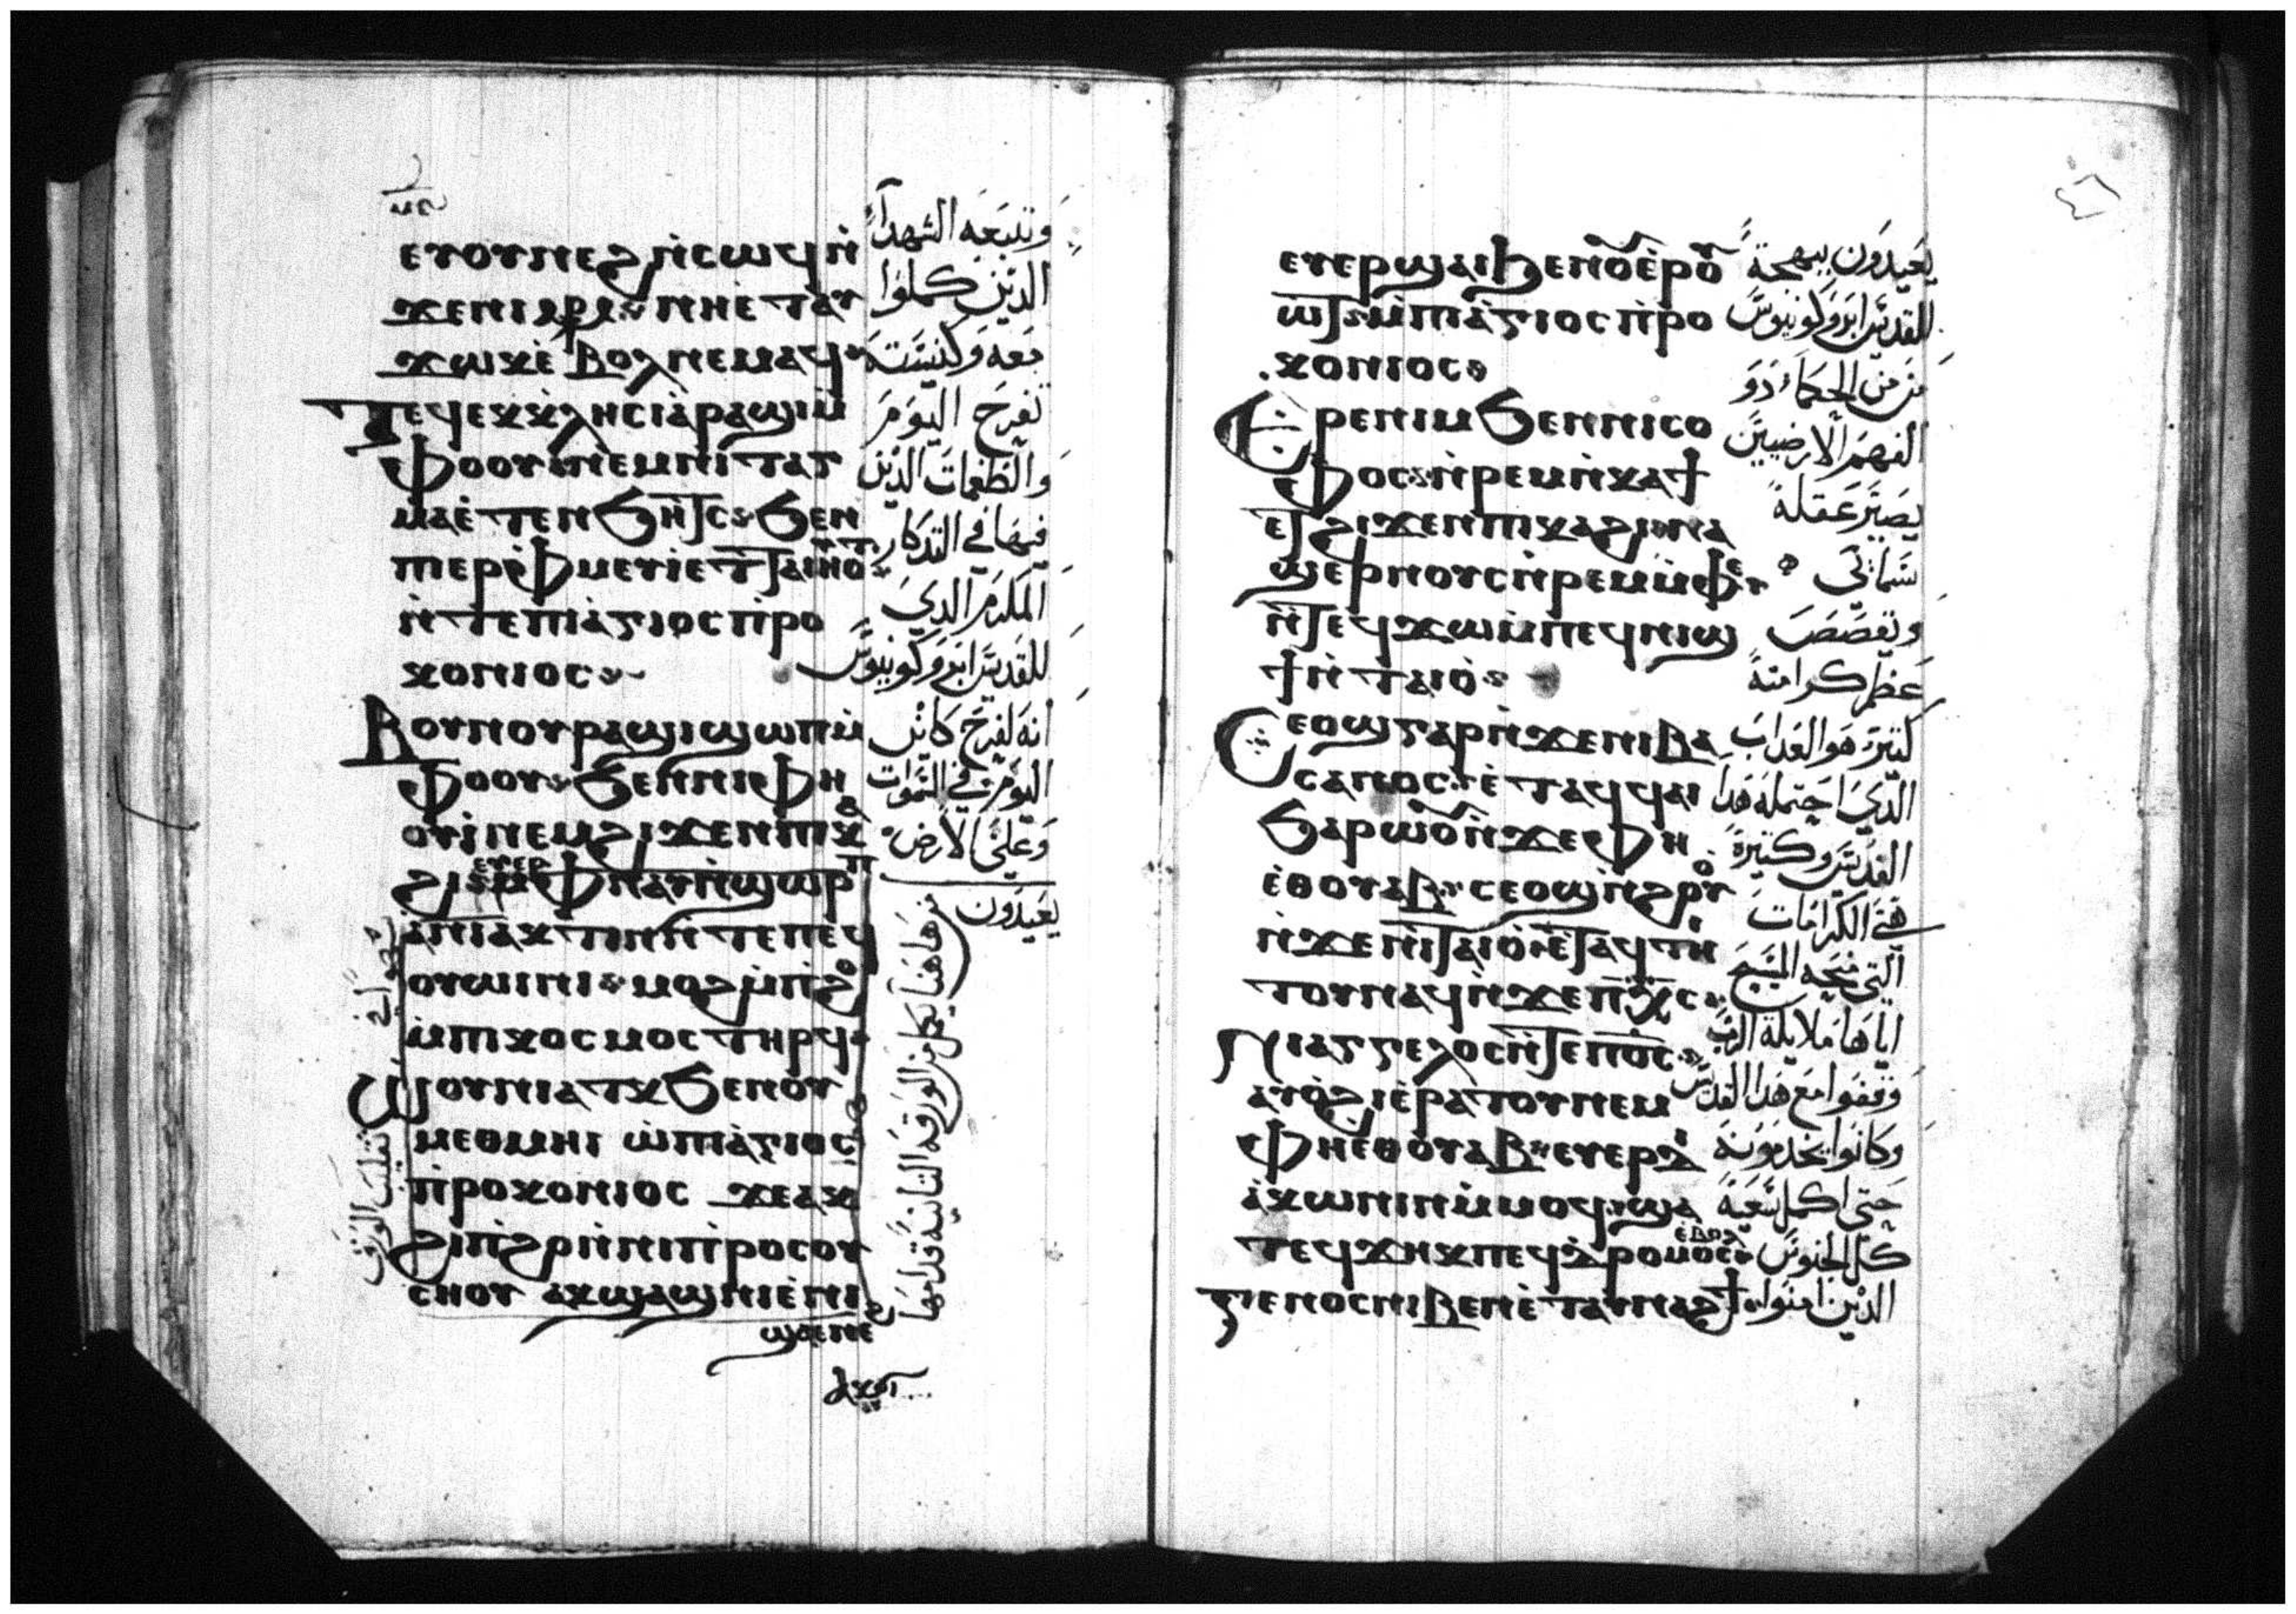 ⲉⲩⲟⲩⲛⲉϩ ⲛ̀ⲥⲱϥ ⲛ̀
ϫⲉⲛⲓ
ⲛⲏⲉ̀ⲧⲁⲩ
ϫⲱⲕ ⲉ̀ⲃⲟⲗ ⲛⲉⲙⲁϥ
ⲧⲉϥⲉⲕⲕⲗⲏⲥⲓⲁ̀ ⲣⲁϣⲓ ⲙ̀
ⲫⲟⲟⲩ ⲛⲉⲙ ⲛⲓⲧⲁⲅ
ⲙⲁ ⲉ̀ⲧⲉⲛϧⲏⲧⲥ ϧⲉⲛ
ⲡⲉⲣⲫ̀ⲙⲉⲩⲓ ⲉⲧⲧⲁⲓⲏⲟⲩⲧ
ⲛ̀ⲧⲉⲡⲓⲁ̀ⲅⲓⲟⲥ ⲡ̀ⲣⲟ
ⲕⲟⲛⲓⲟⲥ
ⲟⲩⲛⲟⲩⲣⲁϣⲓ ϣⲱⲡⲓ ⲙ̀
ⲫⲟⲟⲩ ϧⲉⲛ ⲛⲓⲫⲏ
ⲟⲩⲓ̀ ⲛⲉⲙ ϩⲓϫⲉⲛ ⲡⲓⲕⲁ
ϩⲓ
ⲁ̀ⲛⲓⲁⲕⲧⲓⲛ ⲛ̀ⲧⲉ ⲡⲉϥ
ⲟⲩⲱⲓⲛⲓ ⲙⲟϩ ⲙ̀ⲡ̀ϩⲟ
ⲙ̀ⲡⲓⲕⲟⲥⲙⲟⲥ ⲧⲏⲣϥ
ⲱⲟⲩⲛⲓⲁⲧⲕ ϧⲉⲛ ⲟⲩ
ⲙⲉⲑⲙⲏⲓ ⲱ̀ ⲡⲓⲁ̀ⲅⲓⲟⲥ
ⲡ̀ⲣⲟⲕⲟⲛⲓⲟⲥ ϫⲉ ⲁⲕ
ϩⲓⲡ̀ϩⲣⲏⲓ ⲛ̀ⲛⲓⲡ̀ⲣⲟⲥⲟⲩ
ⲥⲛⲟⲩ ⲁⲕϣⲁϣⲛⲓ ⲉ̀ⲛⲓ
ϣⲁⲉⲛⲉϩ
وتتبعه الشهدآء
الدين كملوا
معه وكنيسته
تفرح اليوم
والطغمات الدين
فيها في التدكار
المكرم الدي
للقديس ابروكونيوس
انه لفرح كاين
اليوم في السموات
وعلي الارض
يعيدون
ⲉⲩⲉⲣϣⲁⲓ ϧⲉⲛ ⲟⲩⲉⲣⲟⲩ
ⲱⲧ ⲙ̀ⲡⲓⲁ̀ⲅⲓⲟⲥ ⲡ̀ⲣⲟ
ⲕⲟⲛⲓⲟⲥ
ⲉⲣⲉ ⲛⲓⲙ ϧⲉⲛ ⲛⲓⲥⲟ
ⲫⲟⲥ ⲛ̀ⲣⲉⲙⲛ̀ⲕⲁϯ
ⲉⲧϩⲓϫⲉⲛ ⲡⲓⲕⲁϩⲓ ⲛⲁ
ϣⲉⲣⲛⲟⲩⲥ ⲛ̀ⲣⲉⲙⲙ̀ⲫⲉ
ⲛ̀ⲧⲉϥϫⲱ ⲙ̀ⲡⲉϥⲛⲓϣ
ϯ ⲛ̀ⲧⲁⲓⲟ̀
ⲥⲉⲟϣ ⲅⲁⲣ ⲛ̀ϫⲉⲛⲓⲃⲁ
ⲥⲁⲛⲟⲥ ⲉ̀ⲧⲁϥϥⲁⲓ
ϧⲁⲣⲱⲟⲩ ⲛ̀ϫⲉⲫⲏ
ⲉ̀ⲑⲟⲩⲁⲃ ⲥⲉⲟϣ
ⲛ̀ϫⲉⲛⲓⲧⲁⲓⲟ̀ ⲉ̀ⲧⲁϥⲧⲏ
ⲓⲧⲟⲩ ⲛⲁϥ ⲛ̀ϫⲉⲡⲭ̅ⲥ̅
ⲛⲓⲁⲅⲅⲉⲗⲟⲥ ⲛ̀ⲧⲉ ⲡ̅ⲟ̅ⲥ̅
ⲁⲩⲟ̀ϩⲓ ⲉ̀ⲣⲁⲧⲟⲩ ⲛⲉⲙ
ⲫⲏⲉⲑⲟⲩⲁⲃ ⲉⲩⲉⲣⲇⲓ
ⲁ̀ⲕⲱⲛⲓⲛ ⲙ̀ⲙⲟϥ ϣⲁ
ⲧⲉϥϫⲏⲕ ⲡⲉϥⲇⲣⲟⲙⲟⲥ ⲉⲃⲟⲗ
ⲅⲉⲛⲟⲥ ⲛⲓⲃⲉⲛ ⲉ̀ⲧⲁⲩⲛⲁϩϯ
يعيدون ببهجة
للقديس ابروكونيوس
من من الحكماء دو
الفهم الارضيين
يصير عقله
سمائي
ويقصص
عظم كرامته
كتيرة هو العداب
الدي احتمله هدا
القديس وكتيرة
هي الكرامات
التي منحه المسيح
ايا ها ملايكة الرب
وقفوا مع هدا القديس
وكانوا يخدمونه
حتي اكمل سعيه
كل الجنوس
الدين امنوا